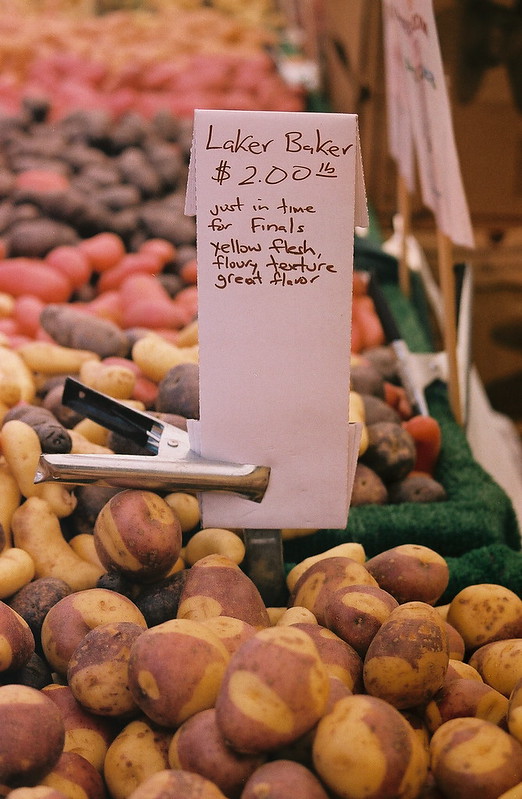 Laker Baker
$ 2.00 lb
just in time
for Finals
yellow flesh,
floury texture
great flavor